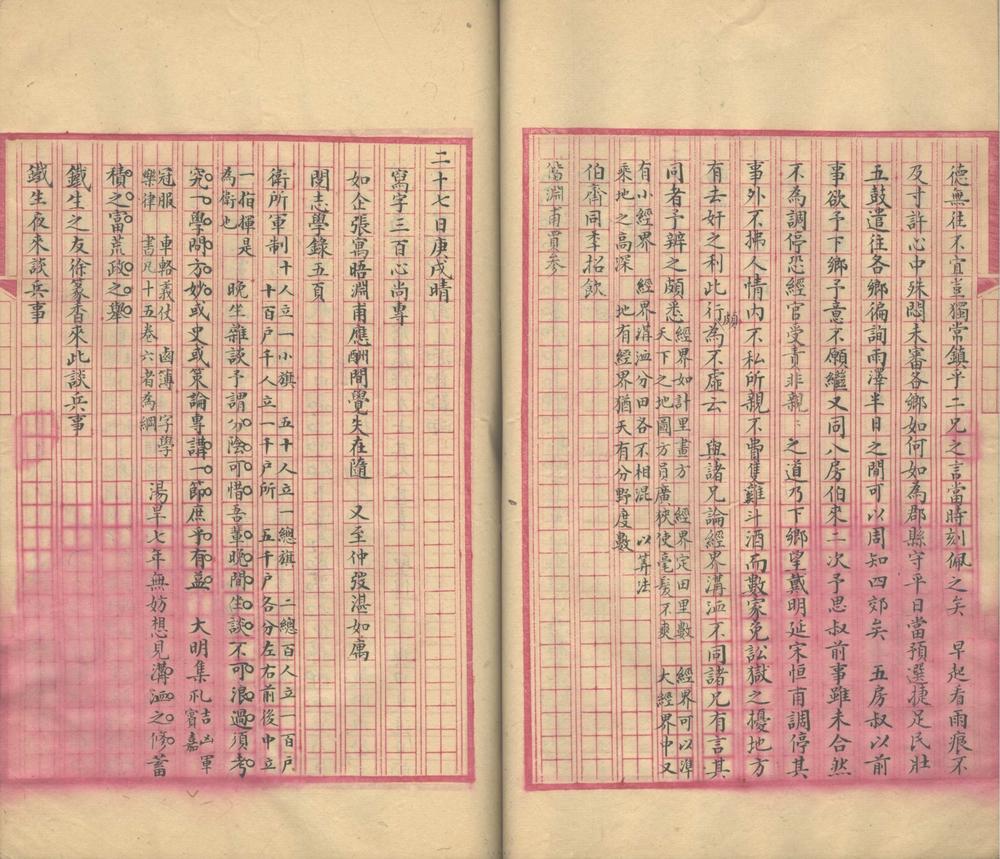 德無往不宜豈獨常鎮乎二兄之言當時刻佩之矣　早起看雨痕不
及寸許心中殊悶未審各鄉如何如為郡縣守平日當預選捷足民壯
五鼓遣往各鄉徧詢雨澤半日之間可以周知四郊矣　五房叔以前
事欲予下鄉予意不願繼又同八房伯來二次予思叔前事雖未合然
不為調停恐經官受責非親親之道乃下鄉望戴明延宋恒甫調停其
事外不拂人情內不私所親不費隻雞斗酒而數家免訟獄之擾地方
有去奸之利此行頗為不虛云　與諸兄論經界溝洫不同諸兄有言其
同者予辨之頗悉經界如計里畫方　經界定田里數　經界可以準
天下之地圖方員廣狹使毫髮不爽　大經界中又
有小經界　經界溝洫分田各不相混　以算法
乘地之高深　地有經界猶天有分野度數
伯齊同季招飲
階淵甫賈參
二十七日庚戌晴
寫字三百心尚專
如企張寫晤淵甫應酬間覺失在隨　又至仲弢湛如寓
閱志學錄五頁
衛所軍制十人立一小旗　五十人立一總旗　二總百人立一百戶
十百戶千人立一千戶所　五千戶各分左右前後中立
一指揮是
為衛也　晚生雜談予謂分陰可惜吾輩晚間坐談不可浪過須考
究一學問方妙或史或策論專講一節庶乎有益　大明集禮吉凶軍
賓嘉
冠服　車輅義仗　鹵簿　字學
樂律　書凡十五卷六者為綱　湯旱七年無妨想見溝洫之修蓄
積之富荒政之舉
鐵生之友徐篆香來此談兵事
鐵生夜來談兵事